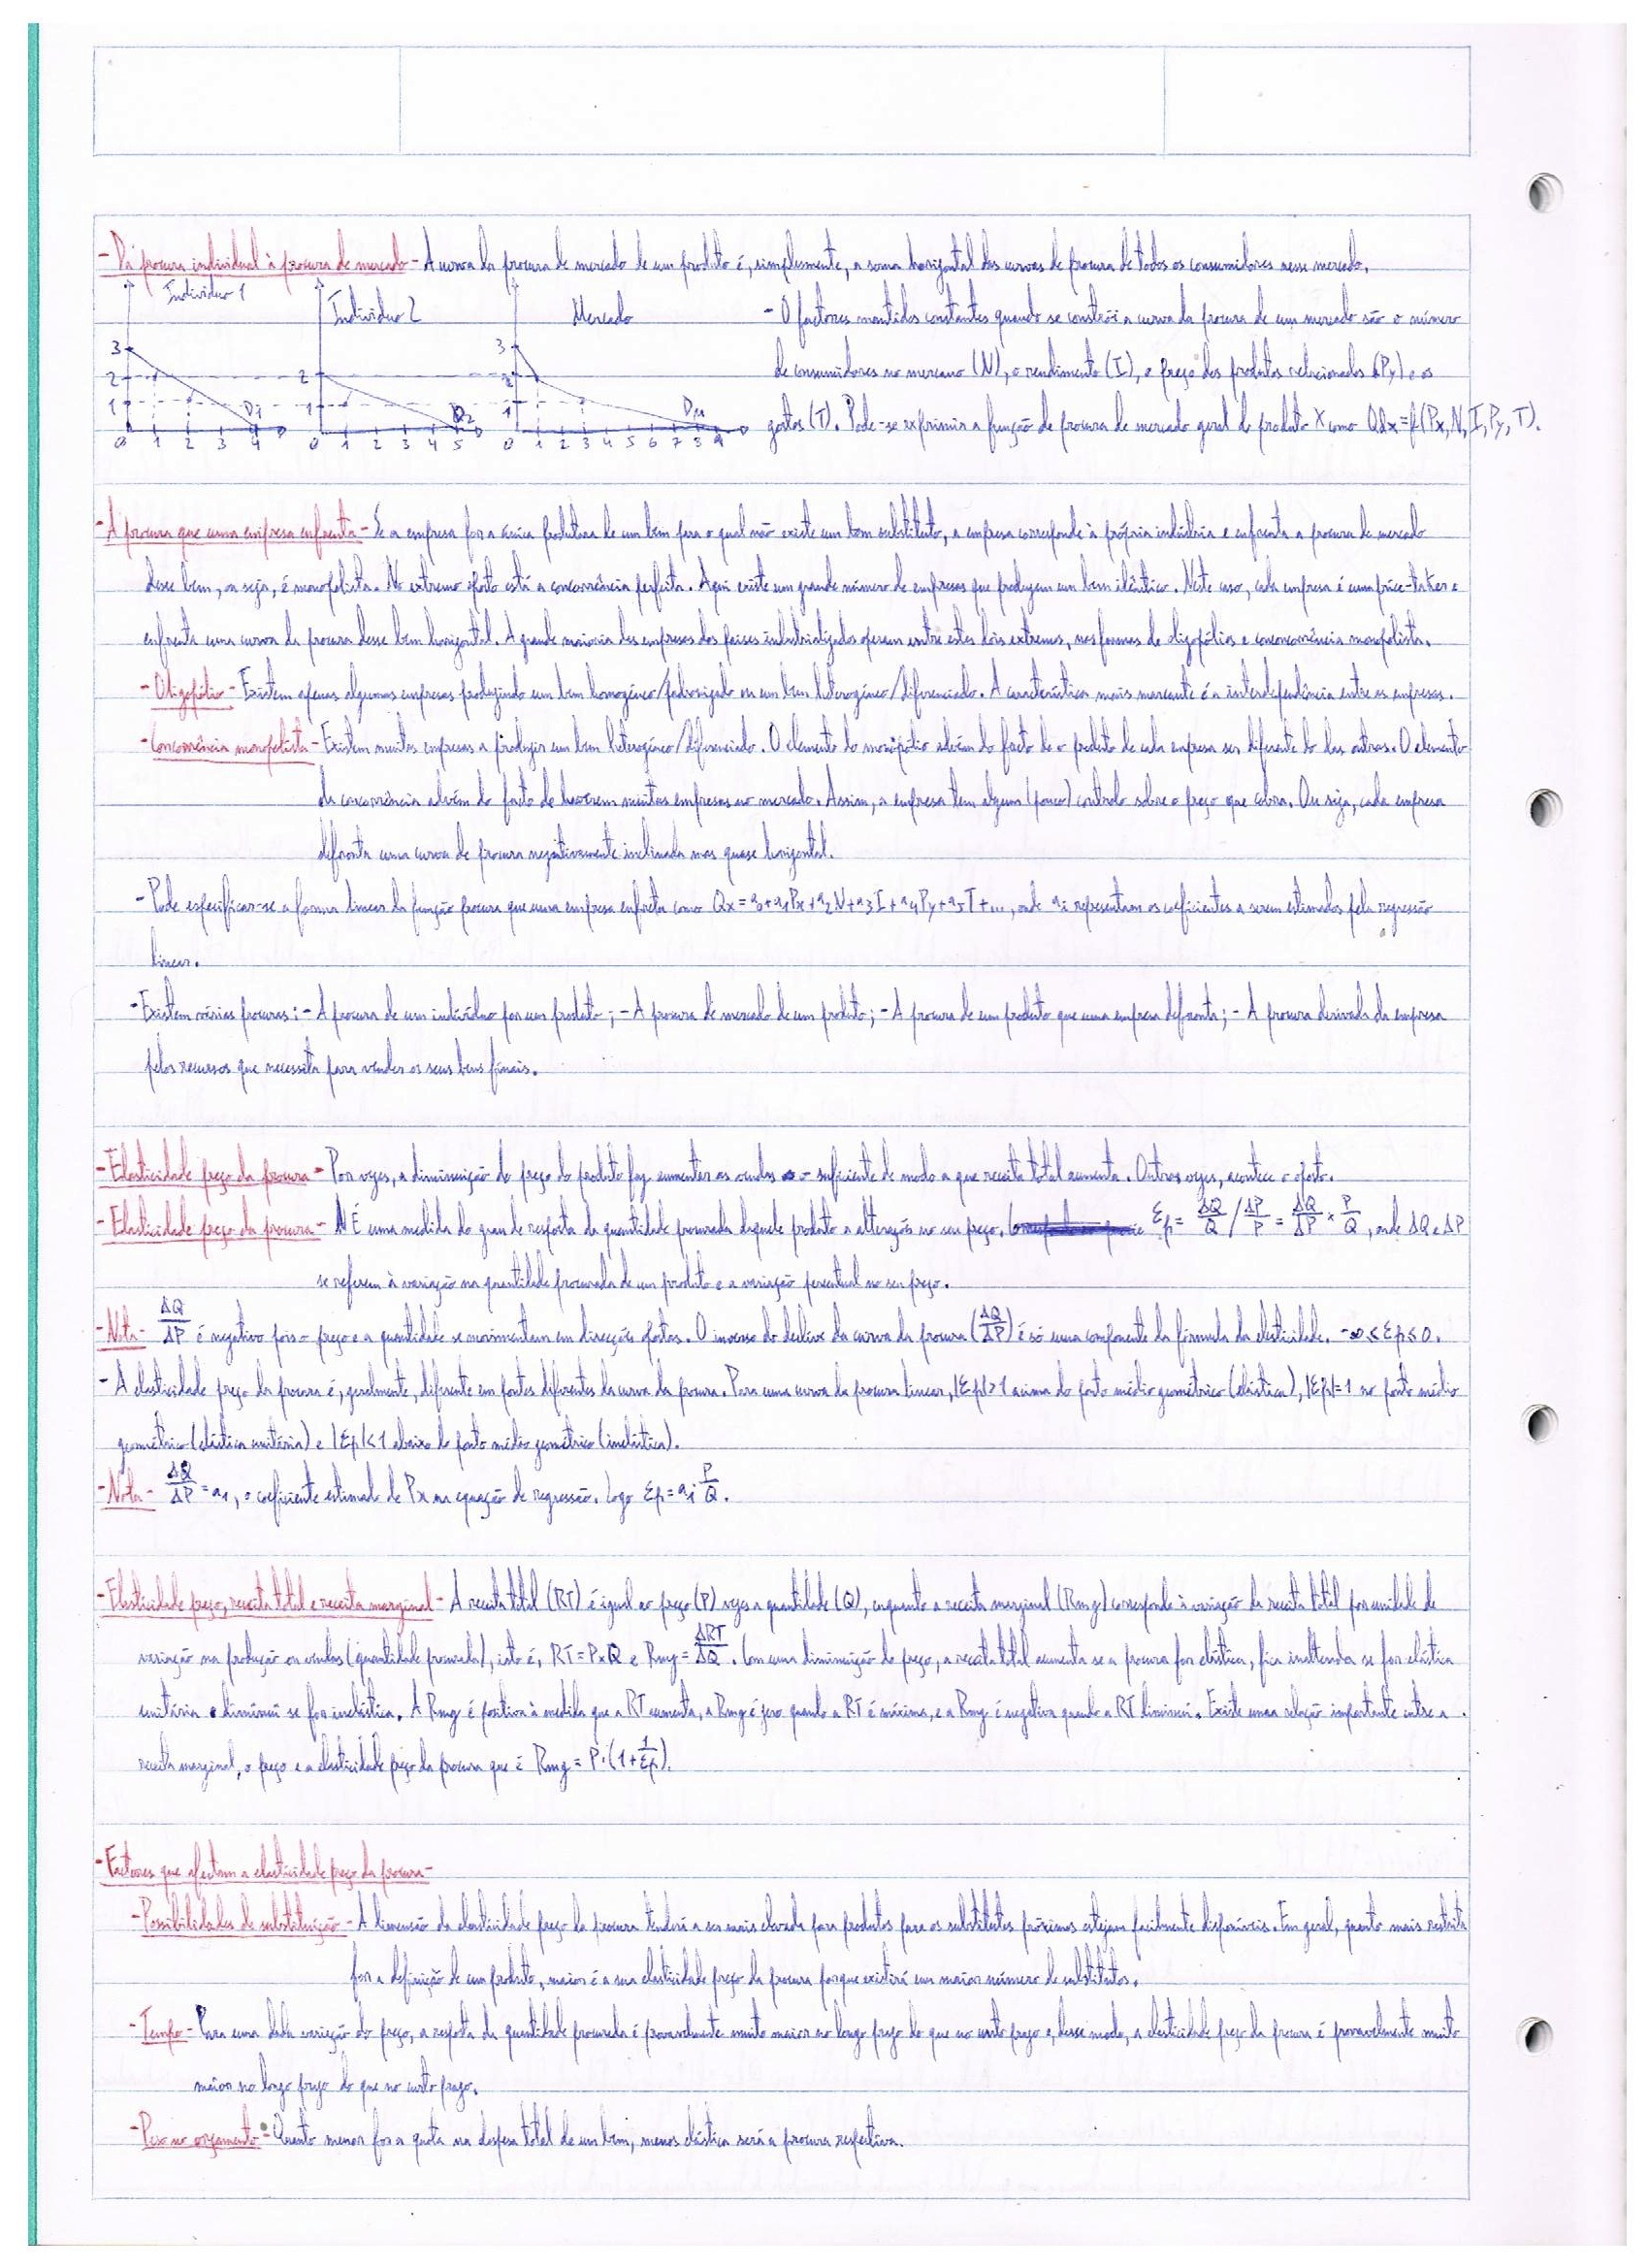 - Da procura individual à procura de mercado - A curva da procura de mercado de um produto é, simplesmente, a soma horizontal das curvas de procura de todos os consumidores nesse mercado.
Indivíduo 1 Indivíduo 2 Mercado - O factores mantidos constantes quando se constrói a curva da procura de um mercado são o número
3 3
de consumidores no mercano (N), o rendimento (I), o preço dos produtos relacionados (Py) e os
2 2 2
1 D1 1 D2 1 DM gostos (T). Pode-se exprimir a função de procura de mercado geral do produto X como Qdx=f(Px,N,I,Py,T).
0 1 2 3 4 0 1 2 3 4 5 0 1 2 3 4 5 6 7 8 9
- A procura que uma empresa enfrenta - Se a empresa for a única produtora de um bem para o qual não existe um bom substituto, a empresa corresponde à própria indústria e enfrenta a procura de mercado
desse bem, ou seja, é monopolista. No extremo oposto está a concorrência perfeita. Aqui existe um grande número de empresas que produzem um bem idêntico. Neste caso, cada empresa é uma price-taker e
enfrenta uma curva da procura desse bem horizontal. A grande maioria das empresas dos países industrializados operam entre estes dois extremos, nas formas de oligopólios e concorrência monopolista.
- Oligopólio - Existem apenas algumas empresas produzindo um bem homogéneo/padronizado ou um bem heterogéneo/diferenciado. A característica mais marcante é a interdependência entre as empresas.
- Concorrência monopolista - Existem muitas empresas a produzir um bem heterogéneo/diferenciado. O elemento do monopólio advém do facto de o produto de cada empresa ser diferente do das outras. O elemento
da concorrência advém do facto de haverem muitas empresas no mercado. Assim, a empresa tem algum (pouco) controlo sobre o preço que cobra. Ou seja, cada empresa
defronta uma curva de procura negativamente inclinada mas quase horizontal.
- Pode especificar-se a forma linear da função procura que uma empresa enfrenta como Qx=a0+a1Px+a2N+a3I+a4Py+a5T+..., onde ai representam os coeficientes a serem estimados pela regressão
linear.
- Existem várias procuras: - A procura de um indivíduo por um produto; - A procura de mercado de um produto; - A procura de um produto que uma empresa defronta; - A procura derivada da empresa
pelos recursos que necessita para vender os seus bens finais.
- Elasticidade preço da procura - Por vezes, a diminuição do preço do produto faz aumentar as vendas o suficiente de modo a que receita total aumenta. Outras vezes, acontece o oposto.
- Elasticidade preço da procura - É uma medida do grau de resposta da quantidade procurada daquele produto a alterações no seu preço. Ep= ΔQ/Q / ΔP/P = ΔQ/ΔP × P/Q, onde ΔQ e ΔP
se referem à variação na quantidade procurada de um produto e a variação percentual no seu preço.
- Nota - ΔQ/ΔP é negativo pois o preço e a quantidade se movimentam em direcções opostas. O inverso do declive da curva da procura (ΔQ/ΔP) é só uma componente da fórmula da elasticidade. -∞≤Ep≤0.
- A elasticidade preço da procura é, geralmente, diferente em pontos diferentes da curva da procura. Para uma curva da procura linear, |Ep|>1 acima do ponto médio geométrico (elástica), |Ep|=1 no ponto médio
geométrico (elástica unitária) e |Ep|<1 abaixo do ponto médio geométrico (inelástica).
- Nota - ΔQ/ΔP = a1, o coeficiente estimado de Px na equação de regressão. Logo Ep=a1·P/Q.
- Elasticidade preço, receita total e receita marginal - A receita total (RT) é igual ao preço (P) vezes a quantidade (Q), enquanto a receita marginal (Rmg) corresponde à variação da receita total por unidade de
variação na produção ou vendas (quantidade procurada), isto é, RT=P×Q e Rmg=ΔRT/ΔQ. Com uma diminuição do preço, a receita total aumenta se a procura for elástica, fica inalterada se for elástica
unitária e diminui se for inelástica. A Rmg é positiva à medida que a RT aumenta, a Rmg é zero quando a RT é máxima, e a Rmg é negativa quando a RT diminui. Existe uma relação importante entre a
receita marginal, o preço e a elasticidade preço da procura que é Rmg = P·(1+1/Ep).
- Factores que afectam a elasticidade preço da procura -
- Possibilidades de substituição - A dimensão da elasticidade preço da procura tenderá a ser mais elevada para produtos para os substitutos próximos estejam facilmente disponíveis. Em geral, quanto mais restrita
for a definição de um produto, maior é a sua elasticidade preço da procura porque existirá um maior número de substitutos.
- Tempo - Para uma dada variação do preço, a resposta da quantidade procurada é provavelmente muito maior no longo prazo do que no curto prazo e, desse modo, a elasticidade preço da procura é provavelmente muito
maior no longo prazo do que no curto prazo.
- Peso no orçamento - Quanto menor for a quota na despesa total de um bem, menos elástica será a procura respectiva.